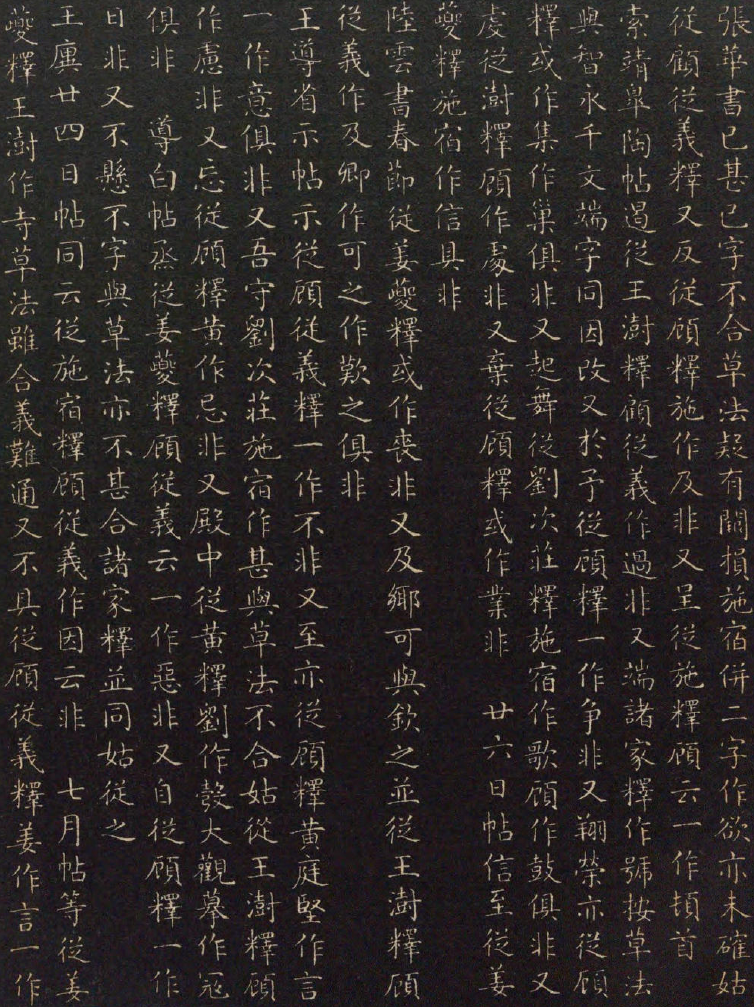 張華書已甚已字不合草法疑有闕損施宿併二字作欲亦未確姑
從顧從義釋又反從顧釋施作及非又呈從施釋顧云一作頓首
索靖皐陶帖遏從王澍釋顧從義作過非又端諸家釋作號按草法
與智永千文端字同因改又於予從顧釋一作爭非又翔縈亦從顧
釋或作集作巢俱非又起舞從劉次莊釋施宿作歌顧作鼓俱非又
虔從澍釋顧作處非又棄從顧釋或作業非　廿六日帖信至從姜
夔釋施宿作信具非
陸雲書春節從姜夔釋或作喪非又及鄉可與欽之並從王澍釋顧
從義作及卿作可之作歎之俱非
王導省示帖示從顧從義釋一作不非又至亦從顧釋黃庭堅作言
一作意俱非又吾守劉次莊施宿作甚與草法不合姑從王澍釋顧
作慮非又忘從顧釋黃作忌非又殿中從黃釋劉作發大觀摹作冠
俱非　導白帖烝從姜夔釋顧從義云一作惡非又自從顧釋一作
日非又不懸不字與草法亦不甚合諸家釋並同姑從之
王廙廿四日帖同云從施宿釋顧從義作因云非　七月帖等從姜
夔釋王澍作寺草法雖合義難通又不具從顧從義釋姜作言一作